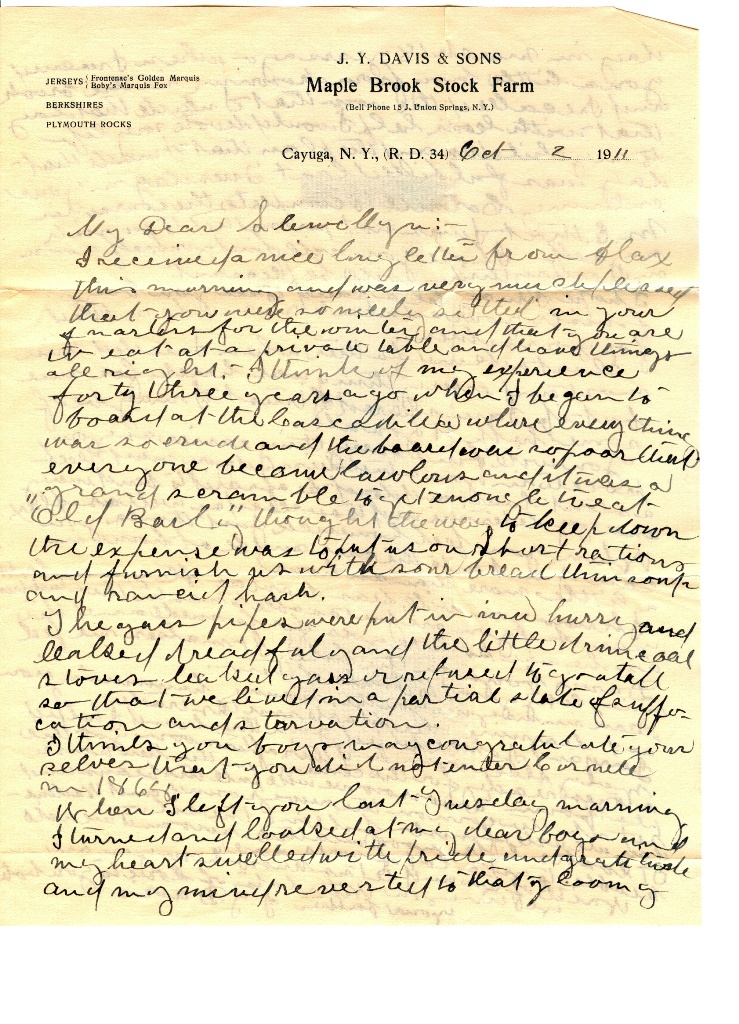 J. Y. DAVIS & SONS
JERSEYS { Frontenac's Golden Marquis
Boby's Marquis Fox
Maple Brook Stock Farm
BERKSHIRES
(Bell Phone 15 J. Union Springs, N. Y.)
PLYMOUTH ROCKS
Cayuga, N. Y., (R. D. 34) Oct 2 1911
My Dear Llewellyn:-
I received a nice long letter from Hax
this morning and was very much pleased
that you were so nicely settled in your
quarters for the winter and that you are
to eat at a private table and have things
all right. I think of my experience
forty three years ago when I began to
board at the Cascadilla where everything
was so crude and the board was so poor that
everyone became lawlous and it was a
grand scramble to get enough to eat
"Old Barlo" thought the way to keep down
the expense was to put us on short rations
and furnish us with sour bread thin soup
and rancid hash.
The gass pipes were put in in a hurry and
leaked dreadfuly and the little drum coal
stoves leaked gass or refused to go at all
so that we lived in a partial state of suffo-
cation and starvation.
I think you boys may congratulate your
selves that you did not enter Cornell
in 1868.
When I left you last Tuesday morning
I turned and looked at my dear boys and
my heart swelled with pride and gratitude
and my mind reverted to that gloomy